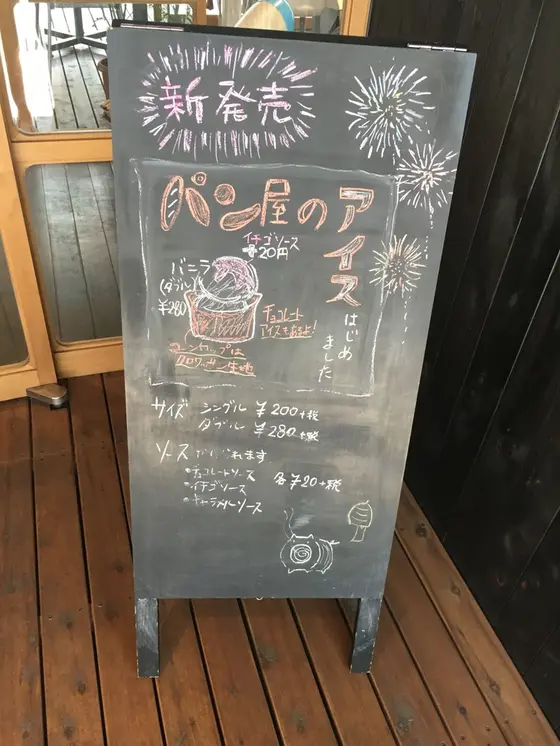 新発売
パン屋のアイス
はじめました
イチゴソース
+20円
バニラ
(ダブル)
¥280
チョコレート
アイスもあるよ!
コーンカップは
クロワッサン生地
サイズ シングル ¥200+税
ダブル ¥280+税
ソース かけられます
•チョコレートソース
•イチゴソース 各¥20+税
•キャラメルソース